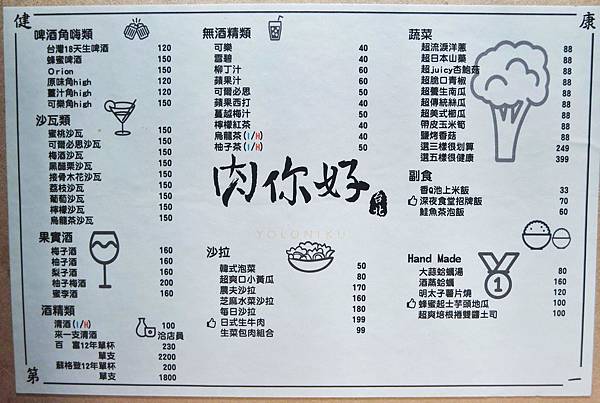 健
康
啤酒角嗨類
台灣18天生啤酒 120
蜂蜜啤酒 150
Orion 150
原味角high 120
薑汁角high 120
可樂角high 120
沙瓦類
蜜桃沙瓦 150
可爾必思沙瓦 150
梅酒沙瓦 150
黑醋栗沙瓦 150
接骨木花沙瓦 150
荔枝沙瓦 150
葡萄沙瓦 150
檸檬沙瓦 150
烏龍茶沙瓦 150
果實酒
梅子酒 160
柚子酒 160
梨子酒 160
柚子梅酒 200
蜜李酒 160
酒精類
清酒(I/H) 100
來一支清酒 洽店員
百富12年單杯 230
單支 2200
蘇格登12年單杯 200
單支 1800
無酒精類
可樂 40
雪碧 40
柳丁汁 60
蘋果汁 60
可爾必思 60
蘋果西打 40
蔓越梅汁 50
檸檬紅茶 40
烏龍茶(I/H) 40
柚子茶(I/H) 50
肉你好
台北
YOLONIKU
沙拉
韓式泡菜 50
超爽口小黃瓜 80
農夫沙拉 170
芝麻水菜沙拉 160
每日沙拉 180
日式生牛肉 199
生菜包肉組合 99
蔬菜
超流淚洋蔥 88
超日本山藥 88
超juicy杏鮑菇 88
超脆口青椒 88
超養生南瓜 88
超傳統絲瓜 88
超美式櫛瓜 88
帶皮玉米筍 88
鹽烤香菇 88
選三樣很划算 249
選五樣很健康 399
副食
香Q池上米飯 33
深夜食堂招牌飯 70
鮭魚茶泡飯 60
Hand Made
大蒜蛤蠣湯 80
酒蒸蛤蠣 160
明太子薯片燒 120
蜂蜜起士芋頭地瓜 100
超爽培根捲雙醬土司 100
1
第
一